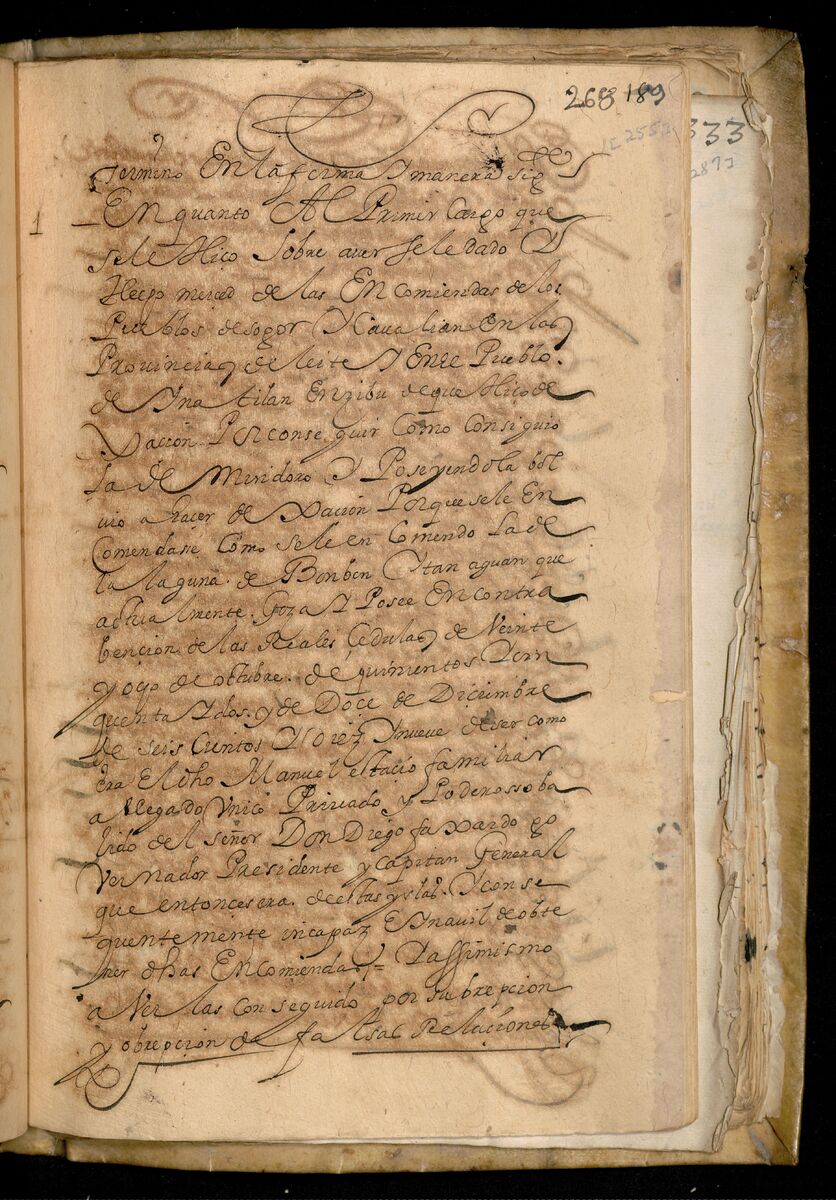 268 189
333
termino En la forma Y manera sig
1
En quanto Al Primir Cargo que
se le Hiço Sobre aver se le dado Y
Hecho merced de las Encomiendas de los
Pueblos de sogor Y Cavalian En las
Provincias de leite Y En el Pueblo.
de Ynatilan En çibu de que Hiço de
Xacion Por conse guir Como Consiguio
la de Mindoro Y Poseyendola bol
vio a haçer de Xacion Porque se le En
Comendase Como se le en Comendo la de
la laguna. de Bonbon Y tan aguan que
actualmente. Goza Y Posee En contra
bencion de las Reales Cedulas de Veinte
y ocho de octubre. de quinientos Y cin
quenta Y dos. y de Doce de Diciembre
de seis Cientos Y diez Y nueve de ser como
Era El dho Manuel estacio familiar
allegado Vnico Privado y Poderosso ba
lido del señor Don Diego faxardo go
vernador Presidente y Capitan General
que entonces era. de estas yslas. Y conse
quentemente incapaz E Ynavil de obte
ner dhas Encomiendas = Y assimismo
a Verlas conseguido por subrepcion
y obrepcion de falsas Relaciones